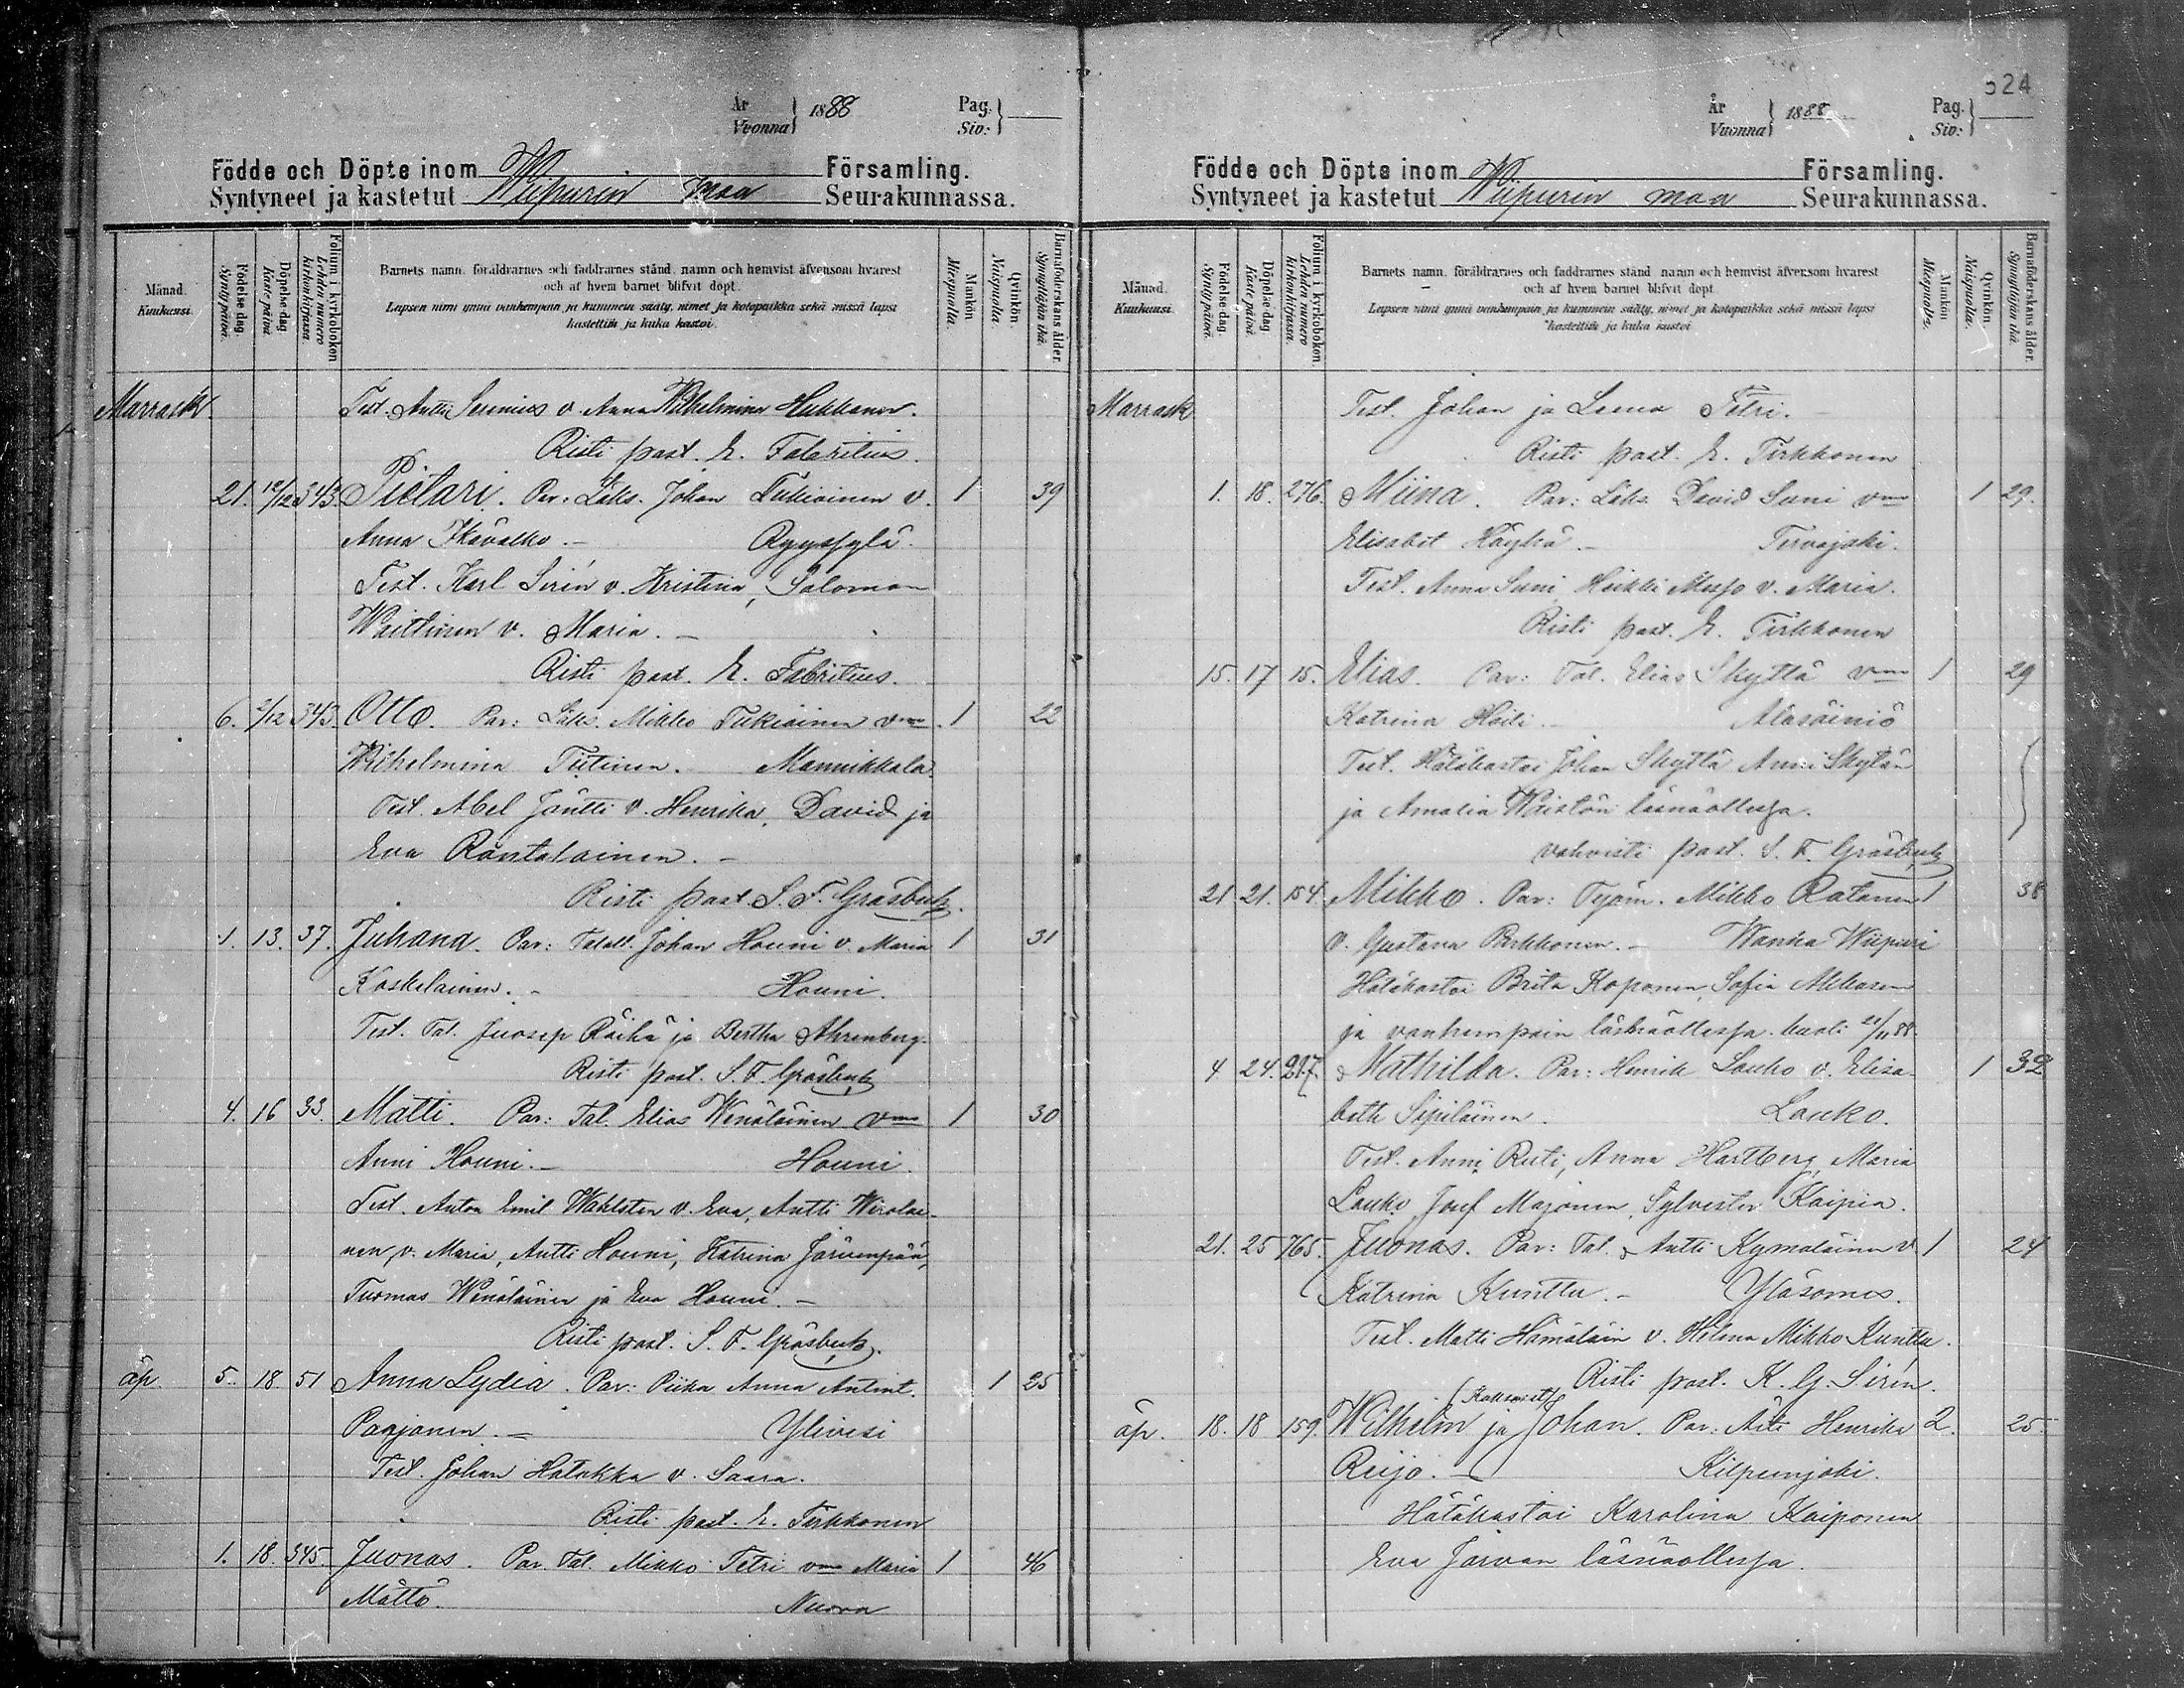 År
Vuonna } 1888
Pag.
Siv: }
Födde och Döpte inom Församling.
Syntyneet ja kastetut Wiipurin maa Seurakunnassa.
Månad.
Kuukausi.
Födelse-dag.
Syntypäivä.
Döpelse-dag.
Kaste-päivä.
Folium i kyrkoboken.
Lehden numero kirkonkirjassa.
Barnets namn, föräldrarnes och faddrarnes stånd, namn och hemvist äfvensom hvarest
och af hvem barnet blifvit döpt.
Lapsen nimi ynnä vanhempain ja kummein sääty, nimet ja kotopaikka sekä missä lapsi
kastettiin ja kuka kastoi.
Mankön
Miespuolia.
Qvinkön.
Naispuolia
Barnaföderskans ålder.
Synnyttäjän ikä.
Marrask. Test. Antti v. Anna Wilhelmina Hukkanen.
Risti past. E. Fabritius.
21. 12/12 343. Pietari. Par: Läks. Johan Tukiainen v. 1 39
Anna Ikävalko. – Ryyssylä.
Test. Karl Sirén v. Kristina, Salomon
Waittinen v. Maria. –
Risti past. E. Fabritius.
6. 2/12 343. Otto. Par: Läks. Mikko Tukiainen vmo. 1 22
Wilhelmina Tiitinen. Mannikkala
Test. Abel Jäntti v. Henrika, David ja
Eva Rantalainen. –
Risti past. S. F. Gräsbeck.
1. 13. 37. Juhana. Par: Johan Houni v. Maria 1 31
Koskelainen. – Houni.
Test. Tal. Juosep Räihä ja Bertha Ahrenberg.
Risti past. S. F. Gräsbeck
4. 16 33. Matti. Par: Tal. Elias Wenäläinen vmo 1 30
Anni Houni. – Houni.
Test. Anton Emil Wahlsten v. Eva, Antti Wirolai-
nen, v. Maria, Antti Houni, Katrina Järvenpää,
Tuomas Wenäläinen ja Eva Houni. –
Risti past. S. F. Gräsbeck.
äp. 5. 18. 51 Anna Lydia. Par: Piika Anna Antint. 1 25
Paajanen. – Ylivesi
Test. Johan Hatakka v. Saara.
Risti past. E. Tirkkonen
1. 18. 345. Juonas. Par. Tal. Mikko Tetri vmo Maria 1 46
Mättö. Nuora
524
År
Vuonna } 1888
Pag.
Siv: }
Födde och Döpte inom Församling.
Syntyneet ja kastetut Wiipurin maa Seurakunnassa.
Månad.
Kuukausi.
Födelse-dag.
Syntypäivä.
Döpelse-dag.
Kaste-päivä.
Folium i kyrkoboken.
Lehden numero kirkonkirjassa.
Barnets namn, föräldrarnes och faddrarnes stånd, namn och hemvist äfvensom hvarest
och af hvem barnet blifvit döpt.
Lapsen nimi ynnä vanhempain ja kummein sääty, nimet ja kotopaikka sekä missä lapsi
kastettiin ja kuka kastoi
Mankön
Miespuolia.
Qvinkön.
Naispuolia.
Barnaföderskans ålder.
Synnyttäjän ikä.
Marrask Test. Johan ja Leena Tetri.
Risti past. E. Tirkkonen
1. 18. 276. Miina. Par: Läks. David Suni vmo 1 29.
Elisabet Häyhä. – Tervajoki.
Test. Anna Suni, Heikki v. Maria.
Risti past. E. Tirkkonen
15. 17 15. Elias. Par: Tal. Elias Skyttä vmo 1 29
Katrina Heili. – Alasäiniö
Test. Hätäkastoi Johan Skyttä Anni Skytän
ja Amalia läsnäollessa.
vahvisti past. S. F. Gräsbeck
21. 21. 154. Mikko. Par: Työm. Mikko Ratanen 1 38
v. Gustava Pirkkonen. – Wanha Wiipuri
Hätäkastoi Brita Koponen, Sofia
ja vanhempain läsnäollessa. kuoli 21/11 88.
4 24. 217. Mathilda. Par: Henrik Lauko v. Elisa- 1 32
beth Sipiläinen. Lauko.
Test. Anni Ruti, Anna Hartberg, Maria
Lauko, Josef Majonen, Sylvester Kaipia.
21. 25 765. Juonas. Par: Tal. Antti Kymäläinen v. 1 24
Katrina Kunttu. – Yläsomes.
Test. Matti Hämäläin v. Helena Mikko Kunttu.
Risti past. K. G. Sirén.
(Kaksoiset)
äp. 18. 18 159. Wilhelm ja Johan. Par: Äiti Henrika 2. 25.
Reijo. – Kilpeenjoki.
Hätäkastoi Karolina Kaiponen
Eva läsnäollessa.